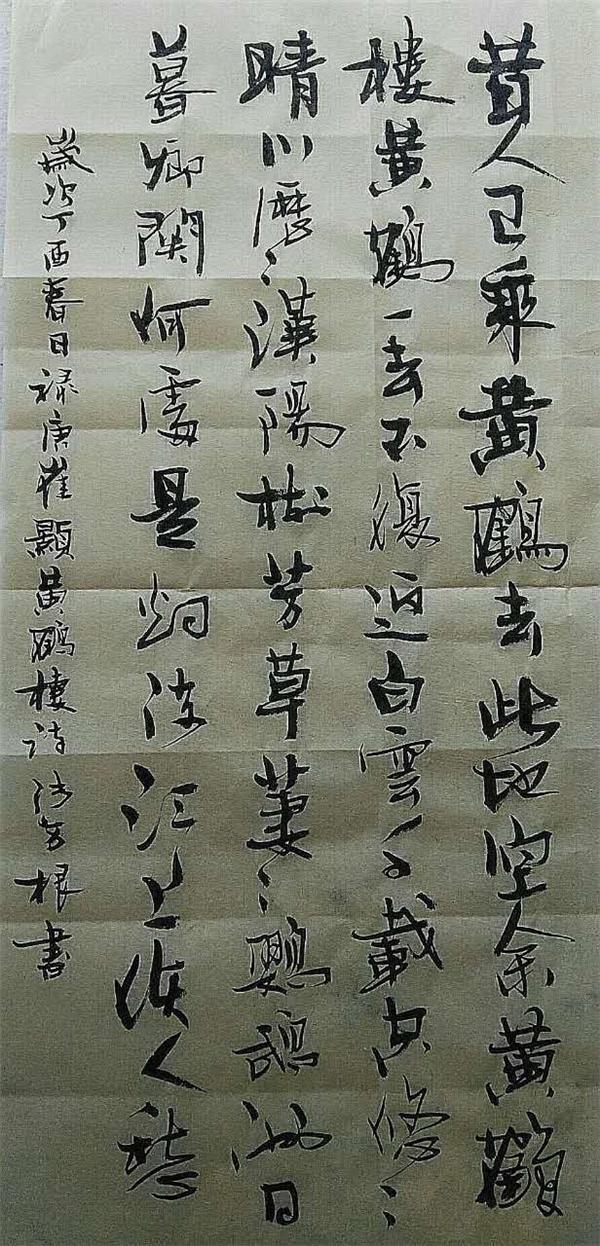 昔人已乘黃鶴去此地空余黃鶴
樓黃鶴一去不復返白雲千載空悠〻
晴川歷〻漢陽樹芳草萋〻鸚鵡洲日
暮鄉關何處是烟波江上使人愁
歲次丁酉春日禄唐崔顥黃鶴樓詩根書